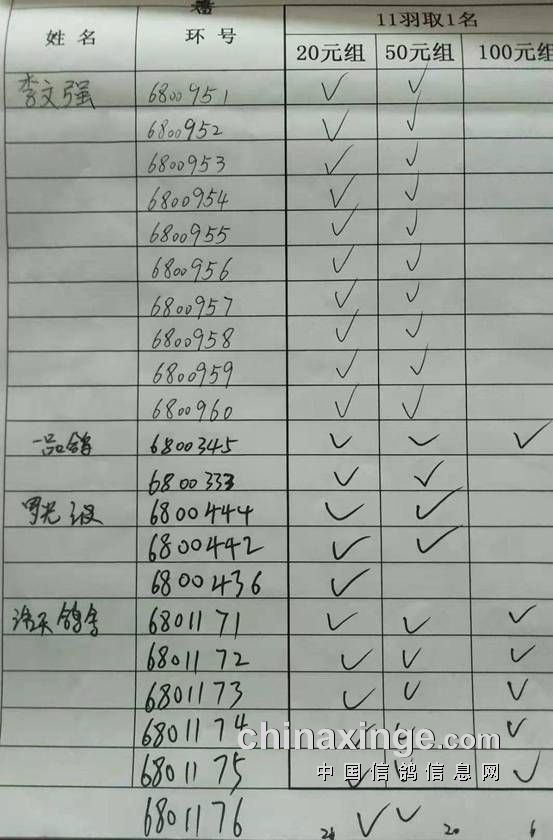 11羽取1名
姓名 环号 20元组 50元组 100元组
李文强 6800951 ✓ ✓
6800952 ✓ ✓
6800953 ✓ ✓
6800954 ✓ ✓
6800955 ✓ ✓
6800956 ✓ ✓
6800957 ✓ ✓
6800958 ✓ ✓
6800959 ✓ ✓
6800960 ✓ ✓
一品鸽 6800345 ✓ ✓ ✓
6800333 ✓ ✓
6800444 ✓ ✓
6800442 ✓ ✓
6800436 ✓
鸽舍 6801171 ✓ ✓ ✓
6801172 ✓ ✓ ✓
6801173 ✓ ✓ ✓
6801174 ✓ ✓ ✓
6801175 ✓ ✓ ✓
6801176 ✓ ✓
20
chinaxinge.com
中国信鸽信息网